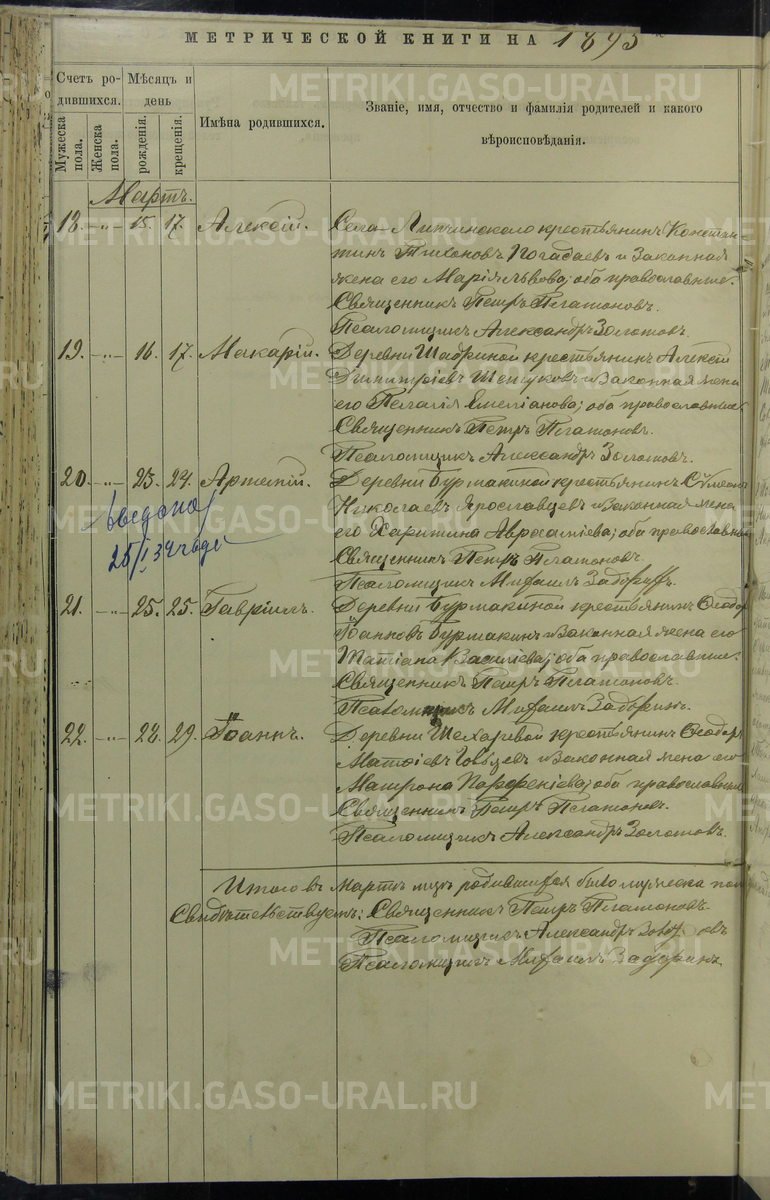 МЕТРИЧЕСКОЙ КНИГИ НА 1895
Счетъ родившихся.
Мѣсяцъ и день
Имѣна родившихся.
Званіе, имя, отчество и фамилія родителей и какого вѣроисповѣданія.
Мужеска пола.
Женска пола.
рожденія.
крещенія.
Мартъ.
18. -„- 15. 17. Алексій. Села Липчинскаго крестьянинъ Констан-
тинъ Тихоновъ Погадаевъ и законная
жена его Марія Львова; оба православные.
Священникъ Петръ Платоновъ.
Псаломщикъ Александръ Золотовъ.
19. -„- 16. 17. Макарій. Деревни Шабриной крестьянинъ Алексій
Димитріевъ и законная жена
его Пелагія Емеліанова; оба православные.
Священникъ Петръ Платоновъ.
Псаломщикъ Александръ Золотовъ.
20. -„- 23. 24. Артемій. Деревни Бурмакиной крестьянинъ
Николаевъ Ярославцевъ и законная жена
его Харитина; оба православные
Священникъ Петръ Платоновъ.
Псаломщикъ Михаилъ Задоринъ.
25/I 34 года
21. -„- 25. 25. Гавріилъ. Деревни Бурмакиной крестьянинъ Ѳеодоръ
Іоанновъ Бурмакинъ и законная жена его
Татіана Васильева; оба православные.
Священникъ Петръ Платоновъ.
Псаломщикъ Михаилъ Задоринъ.
22. -„- 28. 29. Іоаннъ. Деревни крестьянинъ Ѳеодоръ
и законная жена его
Матрона Парѳеніева; оба православные
Священникъ Петръ Платоновъ.
Псаломщикъ Александръ Золотовъ.
Итого въ Мартѣ м‑цѣ родившихся было мужеска пол
Свидѣтельствуемъ: Священникъ Петръ Платоновъ
Псаломщикъ Александръ Золотовъ
Псаломщикъ Михаилъ Задоринъ.
METRIKI.GASO-URAL.RU